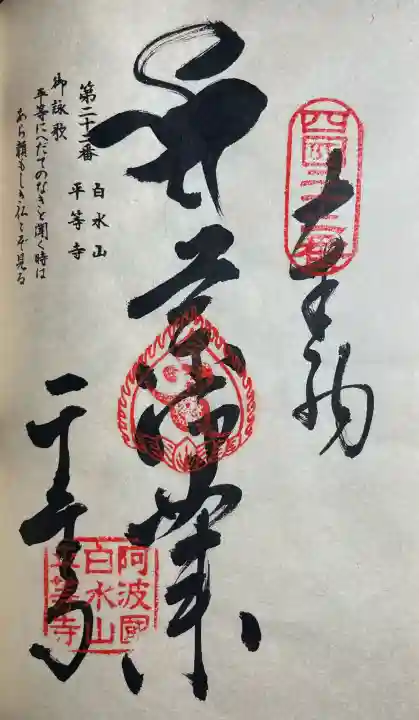 四国二十二番
奉納
薬師如来
阿波國
白水山
平等寺
平等寺
第二十二番 白水山
平等寺
御詠歌
平等にへだてのなきと聞く時は
あら頼もしき仏とぞ見る